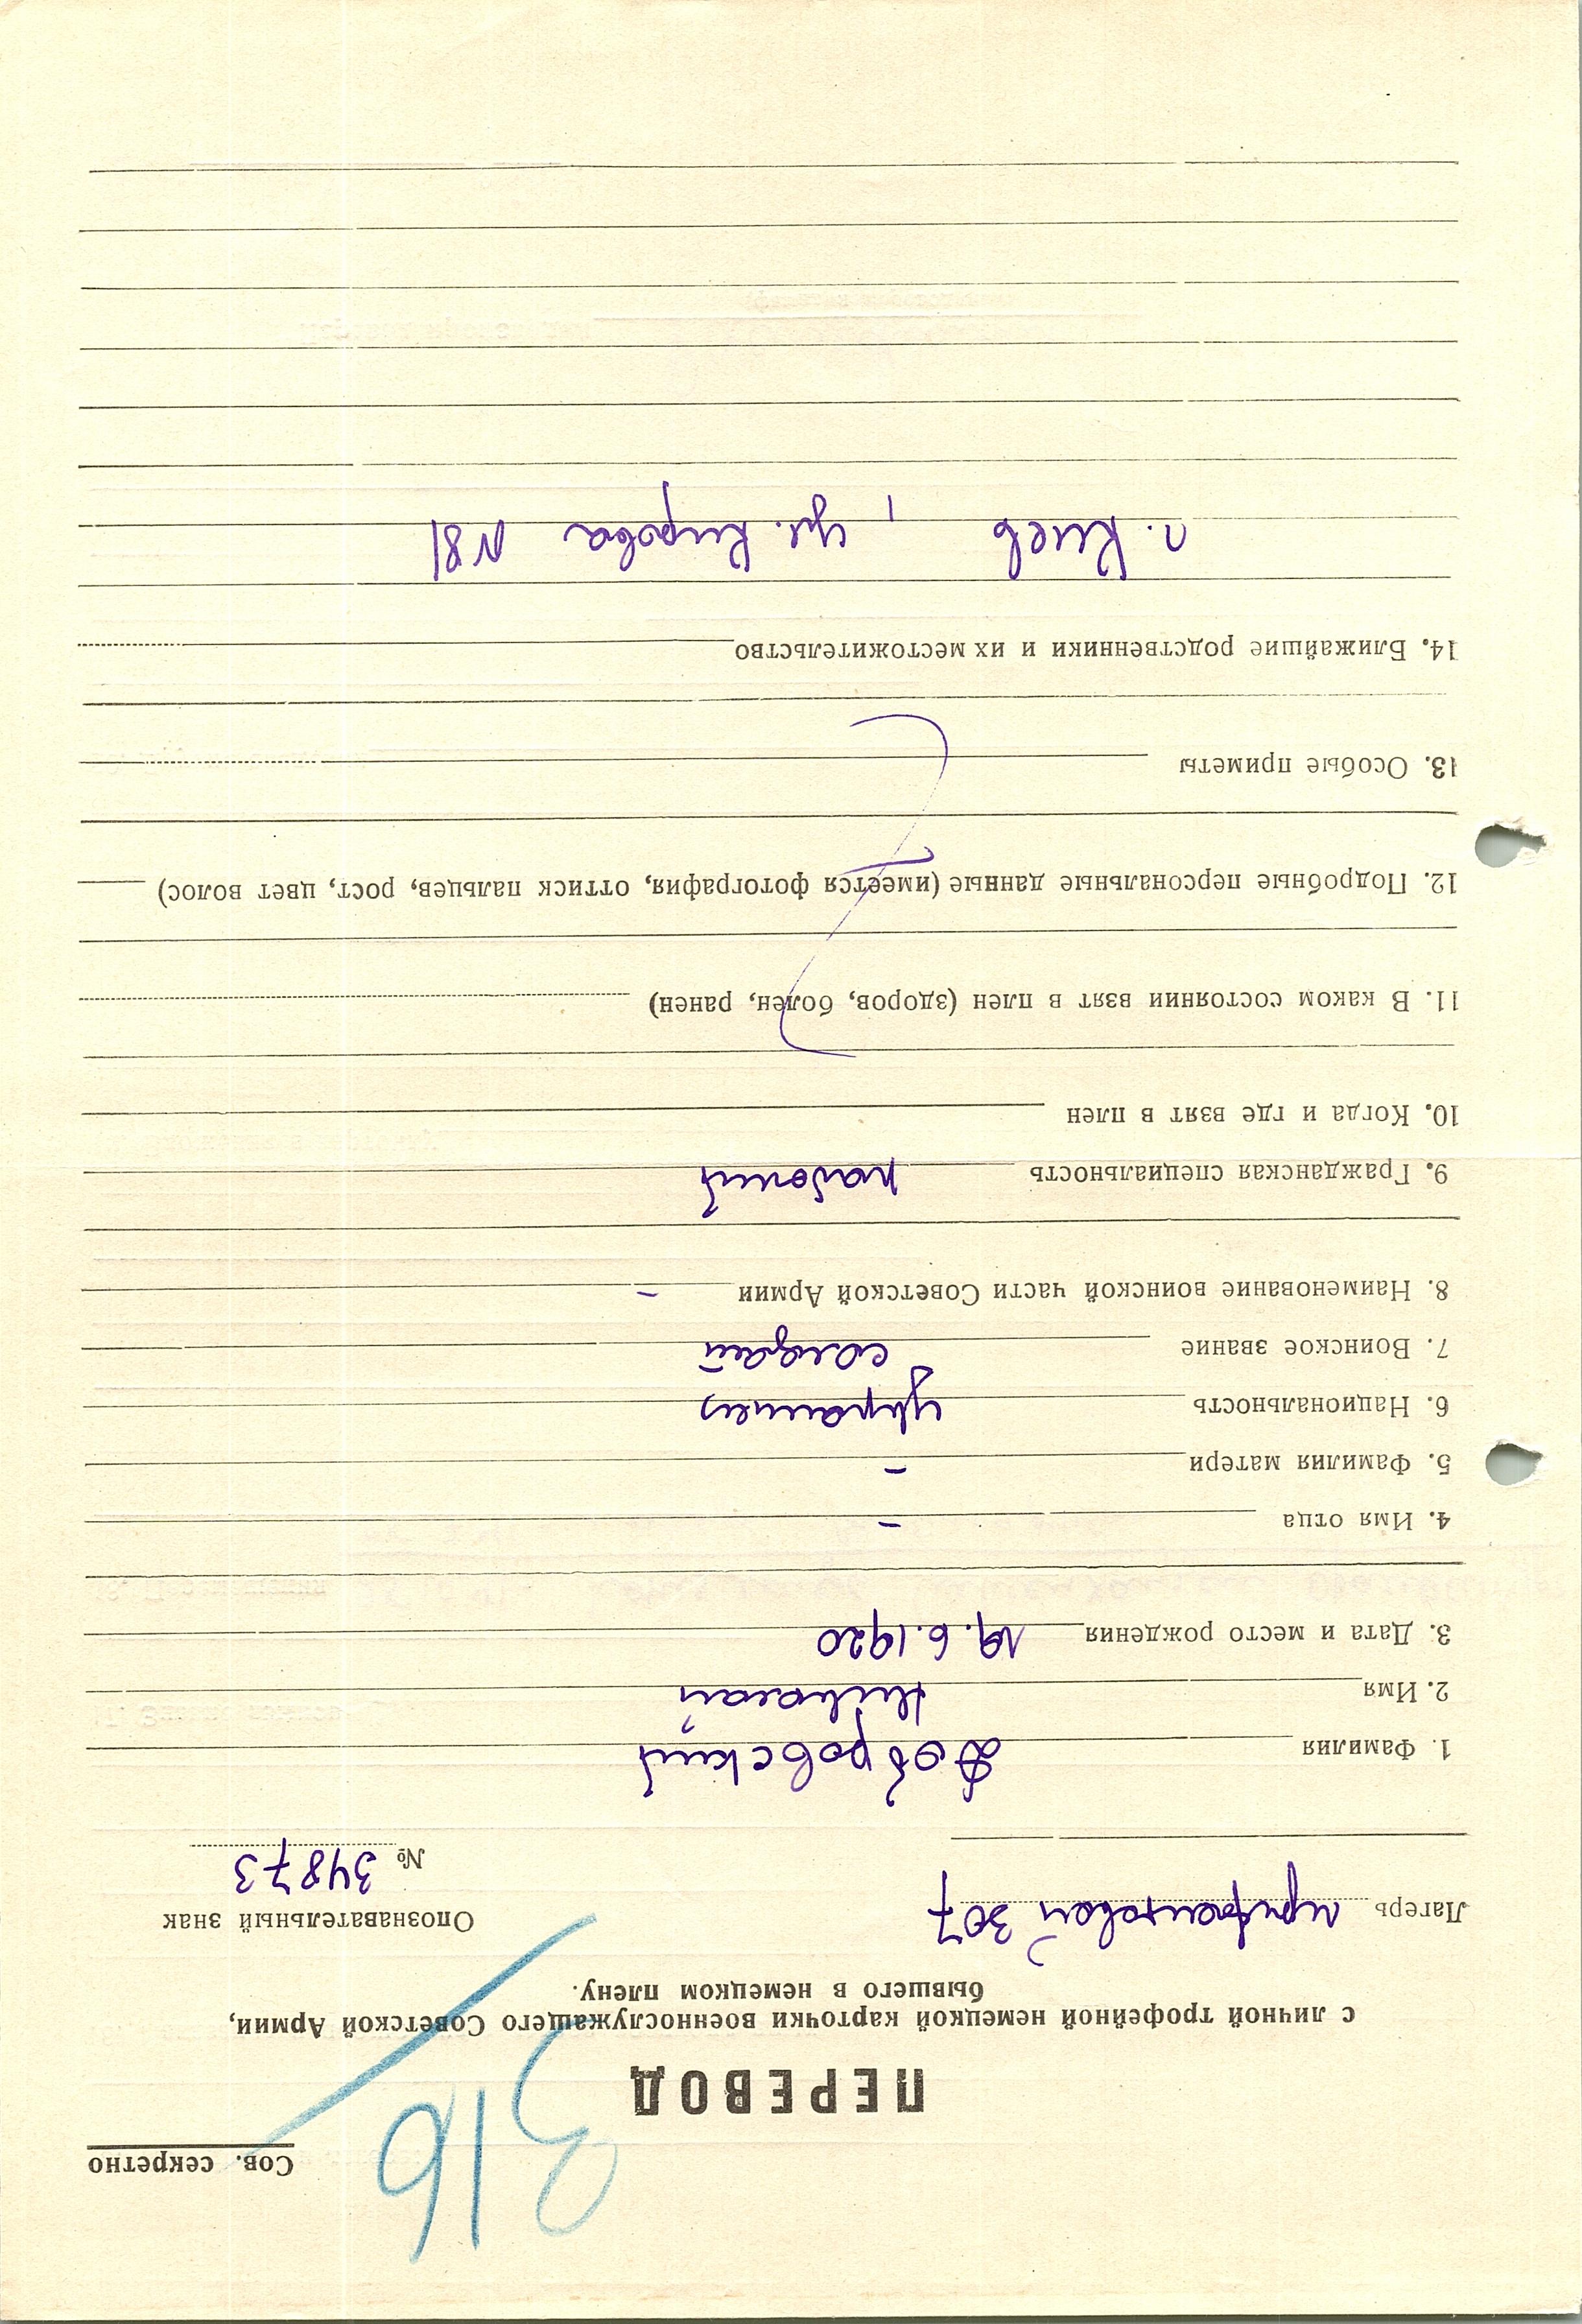 Сов. секретно
316
ПЕРЕВОД
с личной трофейной немецкой карточки военнослужащего Советской Армии,
бывшего в немецком плену.
Лагерь фронтовой 307
Опознавательный знак
№ 34873
1. Фамилия Добровский
2. Имя Николай
3. Дата и место рождения 19.6.1920
4. Имя отца –
5. Фамилия матери –
6. Национальность украинец
7. Воинское звание солдат
8. Наименование воинской части Советской Армии –
9. Гражданская специальность рабочий
10. Когда и где взят в плен
11. В каком состоянии взят в плен (здоров, болен, ранен)
12. Подробные персональные данные (имеется фотография, оттиск пальцев, рост, цвет волос)
13. Особые приметы
14. Ближайшие родственники и их местожительство
г. Киев, ул. Кирова N 81